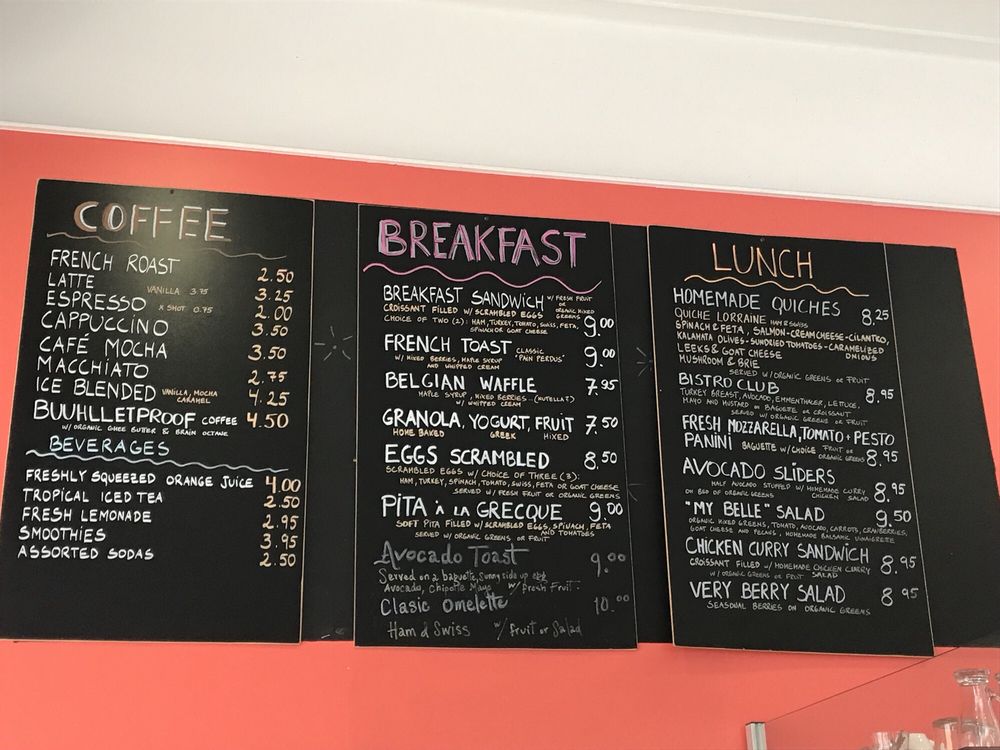 COFFEE
FRENCH ROAST 2.50
LATTE VANILLA 3.75 3.25
ESPRESSO X SHOT 0.75 2.00
CAPPUCCINO 3.50
CAFÉ MOCHA 3.50
MACCHIATO 2.75
ICE BLENDED VANILLA, MOCHA CARAMEL 4.25
BUUHLLETPROOF COFFEE 4.50
W/ORGANIC GHEE BUTTER & BRAIN OCTANE
BEVERAGES
FRESHLY SQUEEZED ORANGE JUICE 4.00
TROPICAL ICED TEA 2.50
FRESH LEMONADE 2.95
SMOOTHIES 3.95
ASSORTED SODAS 2.50
BREAKFAST
BREAKFAST SANDWICH W/FRESH FRUIT OR ORGANIC MIXED GREENS
CROISSANT FILLED W/SCRAMBLED EGGS 9.00
CHOICE OF TWO (2): HAM, TURKEY, TOMATO, SWISS, FETA,
SPINACH OR GOAT CHEESE
FRENCH TOAST CLASSIC "PAIN PERDUS" 9.00
W/ MIXED BERRIES, MAPLE SYRUP
AND WHIPPED CREAM
BELGIAN WAFFLE 7.95
MAPLE SYRUP, MIXED BERRIES... (NUTELLA?)
W/ WHIPPED CREAM
GRANOLA, YOGURT, FRUIT 7.50
HOME BAKED GREEK MIXED
EGGS SCRAMBLED 8.50
SCRAMBLED EGGS W/ CHOICE OF THREE (3):
HAM, TURKEY, SPINACH, TOMATO, SWISS, FETA OR GOAT CHEESE
SERVED W/ FRESH FRUIT OR ORGANIC GREENS
PITA À LA GRECQUE 9.00
SOFT PITA FILLED W/SCRAMBLED EGGS, SPINACH, FETA
AND TOMATOES
SERVED W/ORGANIC GREENS OR FRUIT
Avocado Toast 9.00
Served on a baguette, Sunny side up egg
Avocado, Chipotle Mayo w/ fresh Fruit.
Clasic Omelette 10.00
Ham & Swiss w/ fruit or Salad
LUNCH
HOMEMADE QUICHES 8.25
QUICHE LORRAINE HAM & SWISS
SPINACH & FETA, SALMON-CREAM CHEESE-CILANTRO,
KALAMATA OLIVES-SUNDRIED TOMATOES-CARAMELIZED ONIONS
LEEKS & GOAT CHEESE
MUSHROOM & BRIE
SERVED W/ORGANIC GREENS OR FRUIT
BISTRO CLUB 8.95
TURKEY BREAST, AVOCADO, EMMENTHALER, LETTUCE,
MAYO AND MUSTARD W/ BAGUETTE OR CROISSANT
SERVED W/ORGANIC GREENS OR FRUIT
FRESH MOZZARELLA, TOMATO + PESTO
PANINI BAGUETTE W/CHOICE FRUIT OR ORGANIC GREENS 8.95
AVOCADO SLIDERS 8.95
HALF AVOCADO STUFFED W/ HOMEMADE CURRY CHICKEN SALAD
ON BED OF ORGANIC GREENS
"MY BELLE" SALAD 9.50
ORGANIC MIXED GREENS, TOMATO, AVOCADO, CARROTS, CRANBERRIES,
GOAT CHEESE AND PECANS, HOMEMADE BALSAMIC VINAIGRETTE
CHICKEN CURRY SANDWICH 8.95
CROISSANT FILLED W/HOMEMADE CHICKEN CURRY SALAD
W/ORGANIC GREENS OR FRUIT
VERY BERRY SALAD 8.95
SEASONAL BERRIES ON ORGANIC GREENS